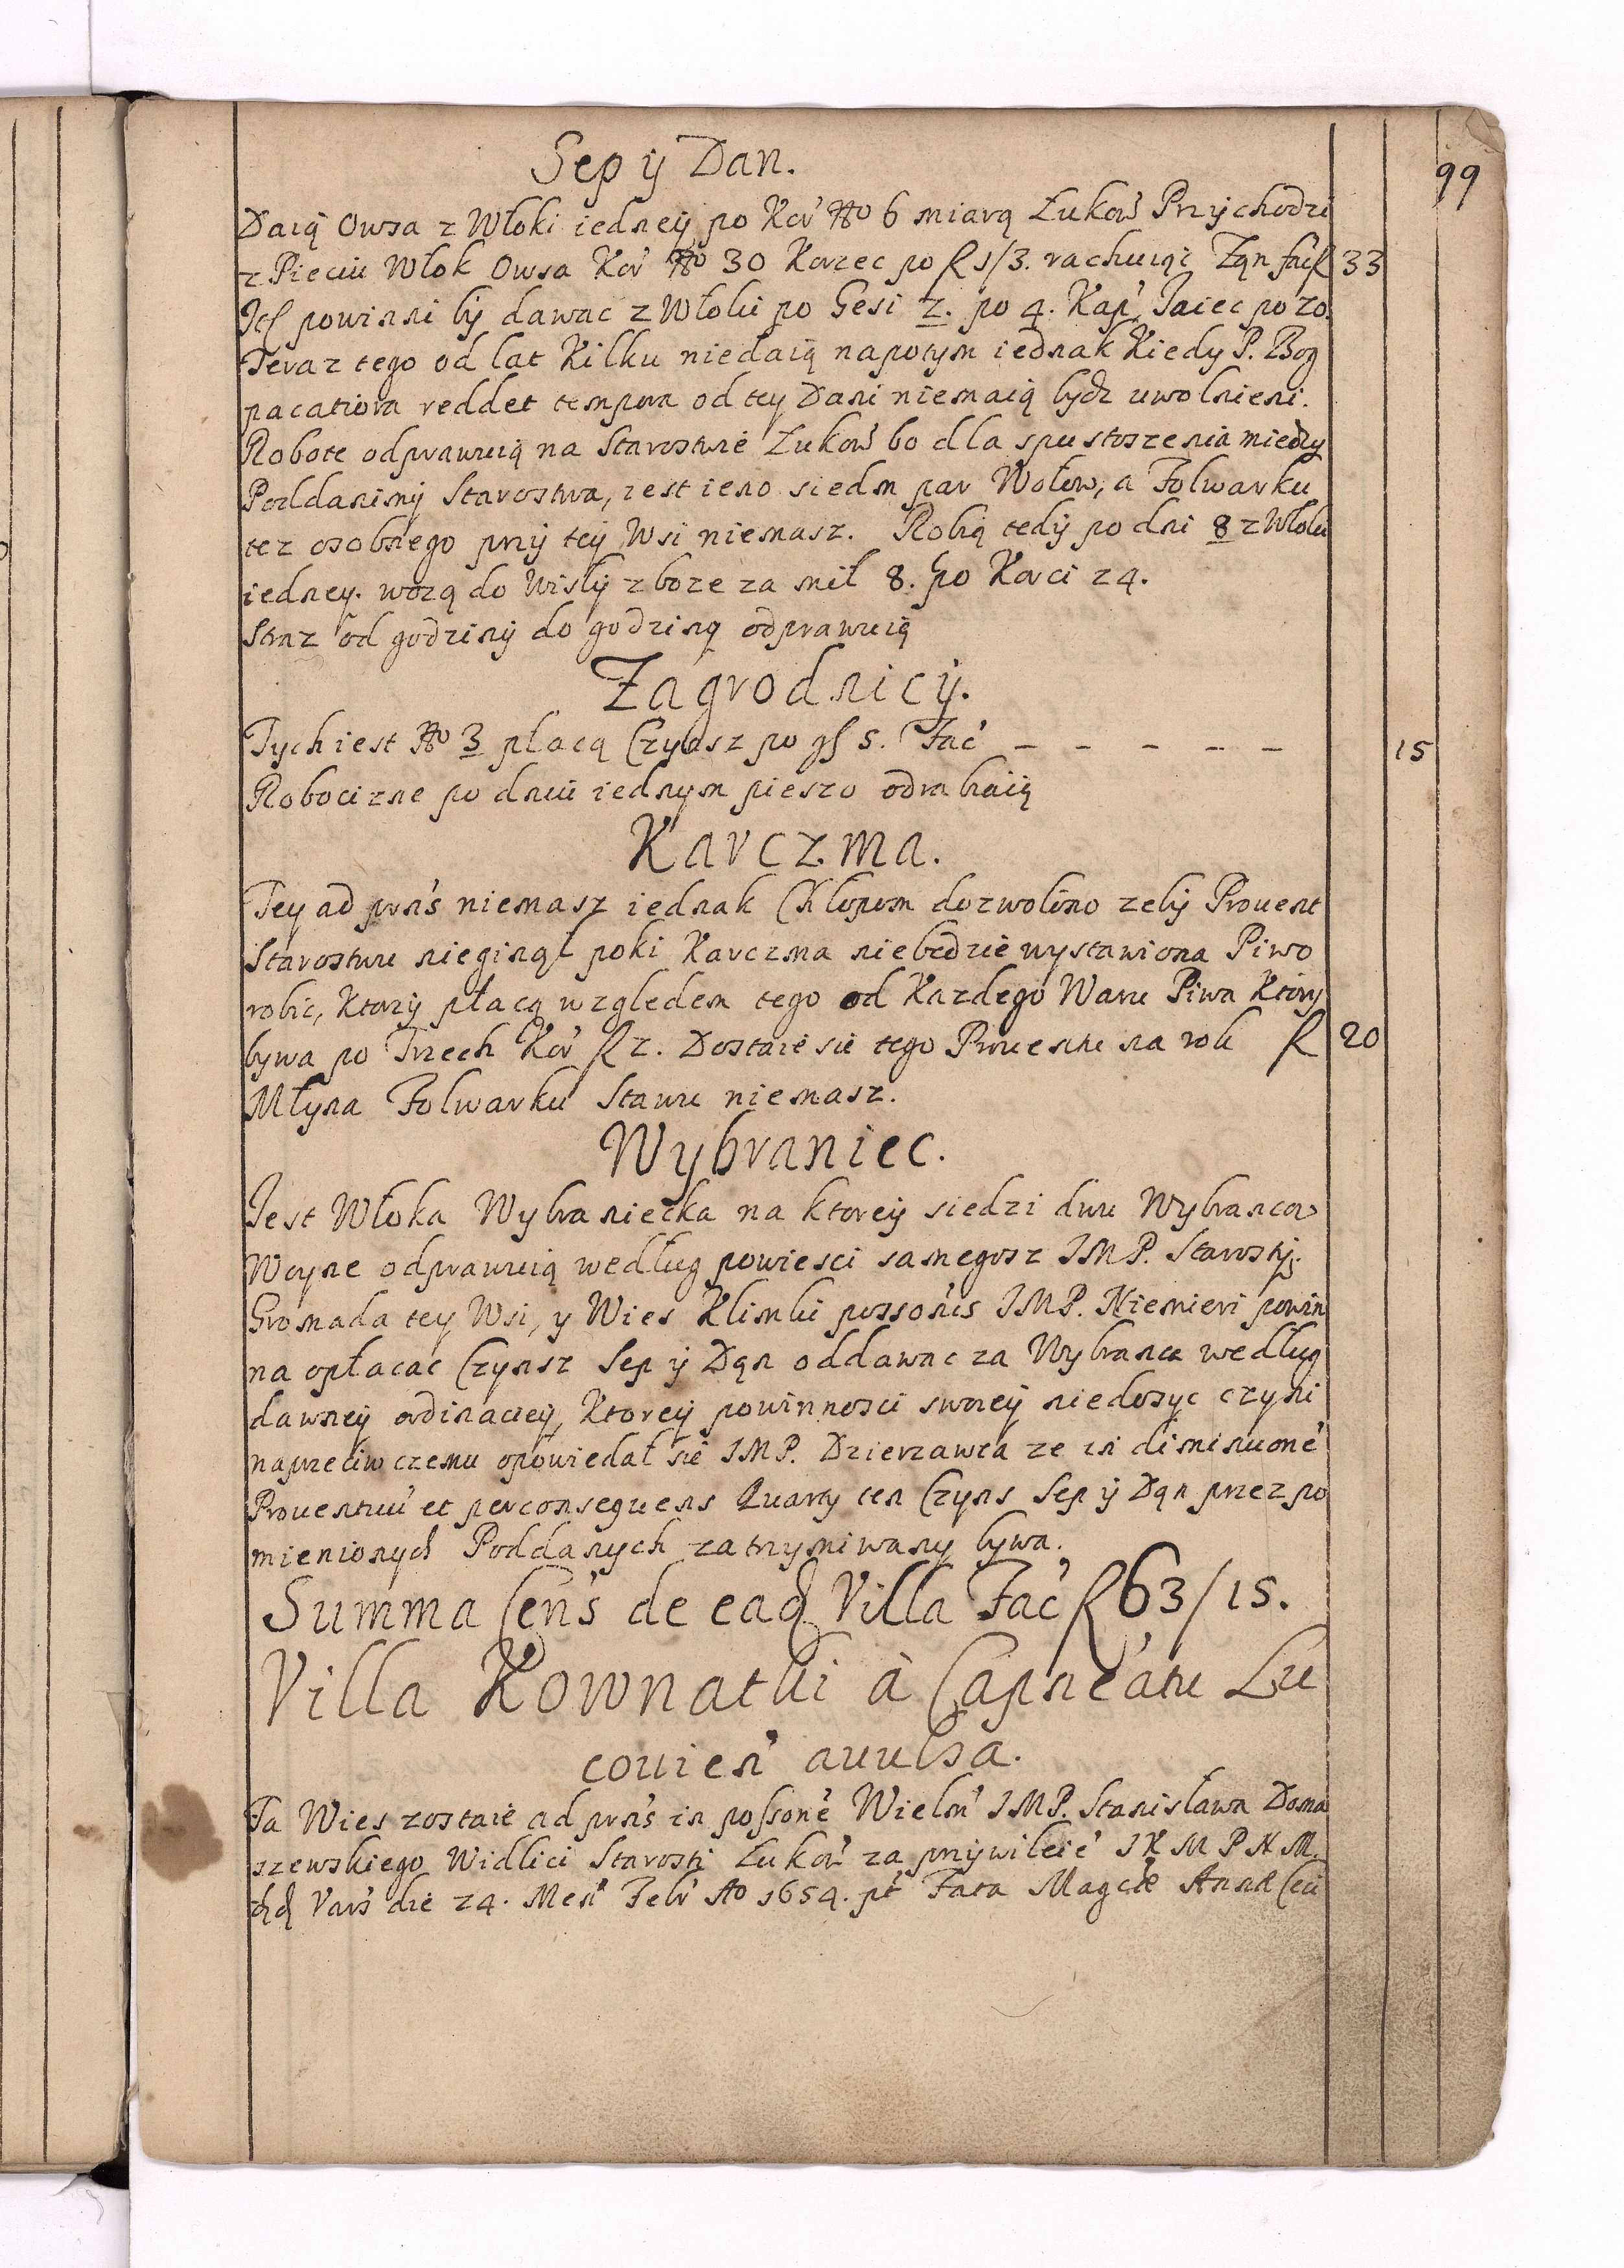 99
Sep ÿ Dan.
Daią Owsa z Włoki iedneÿ po Kor No 6 miarą Łukow Przÿchodzi
z Pieciu Włok Owsa Kor No 30 Korzec po fl 1/3. rachuiąc Ząn fac fl 33
powinni bÿ dawac z Włoki po Gesi 2. po 4. Kap. Iaiec po 20.
Teraz tego od lat Kilku niedaią napotym iednak Kiedy P. Bog
pacatiora reddet tempora od tey Dani niemaią bydz uwolnieni.
Robote odprawuią na Starostwie Łukow bo dla spustoszenia miedzy
Poddanimÿ Starostwa, iest ieno siedm par Wołow, a Folwarku
tez osobnego przÿ teÿ Wsi niemasz. Robią tedÿ po dni 8 z Włoki
iedney. wozą do Wislÿ zboze za mil 8. po Korci 24.
Straz od godzinÿ do godzinÿ odprawuią
Zagrodnicÿ.
Tych iest No 3 płacą Czynsz po gł 5. Fac – – – – – 15
Robocizne po dniu iednym pieszo odrabiaią
Karczma.
Tey ad prns niemasz iednak Chłopom dozwolono zebÿ Prouent
Starostwu nieginął poki Karczma niebedzie wystawiona Piwo
robic, Ktorzÿ płacą wzgledem tego od Kazdego Waru Piwa Ktory
bywa po Trzech Kor fl 2. Dostaie sie tego Prouentu na rok fl 20
Młyna Folwarku Stawu niemasz.
Wybraniec.
Jest Włoka Wybraniecka na ktoreÿ siedzi dwu Wybrancow
Woyne odprawuią według powiesci samegosz IMP. Starostÿ.
Gromada tey Wsi, y Wies Klimki possonis IMP. Niemieri powin
na opłacac Czynsz Sep ÿ Dąn oddawac za Wybranca według
dawneÿ ordinacieÿ, Ktoreÿ powinnosci swoieÿ niedosyc czyni
naprzeciw czemu opowiedał sie IMP. Dzierzawca ze in diminuone
Prouentuu et per consequens Quarty ten Czyns Sep ÿ Dąn przez po
mienionych Poddanych zatrzymiwany bywa.
Summa Cens de ead Villa Fac fl 63/15.
Villa Kownatki à Capneatu Lu
couien auulsa.
Ta Wies zostaie ad prns in possone Wielm IMP. Stanisława Doma
szewskiego Widlici Starosti Łukow za przÿwileie IKMPNM.
Vars die 24. Mens Febr Ao 1654. pt Fata Magcæ Annæ